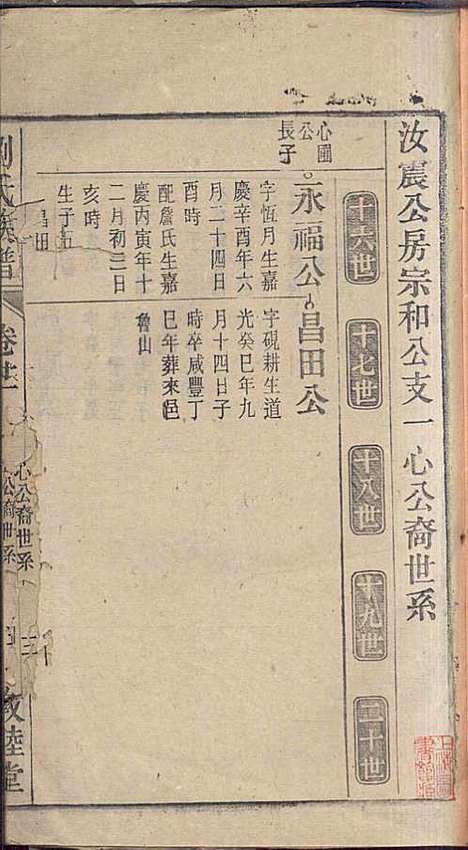 汝震公房宗和公支一心公裔世系
十六世
十七世
十八世
十九世
二十世
心圃
公
長子
永福公
字恆月生嘉
慶辛酉年六
月二十四日
酉時
配詹氏生嘉
慶丙寅年十
二月初三日
亥時
生子
昌田
昌田公
字硯耕生道
光癸巳年九
月十四日子
時卒咸豐丁
巳年葬來邑
魯山
氏族譜
卷廿
心公裔世系
公裔世系
三
敦睦堂